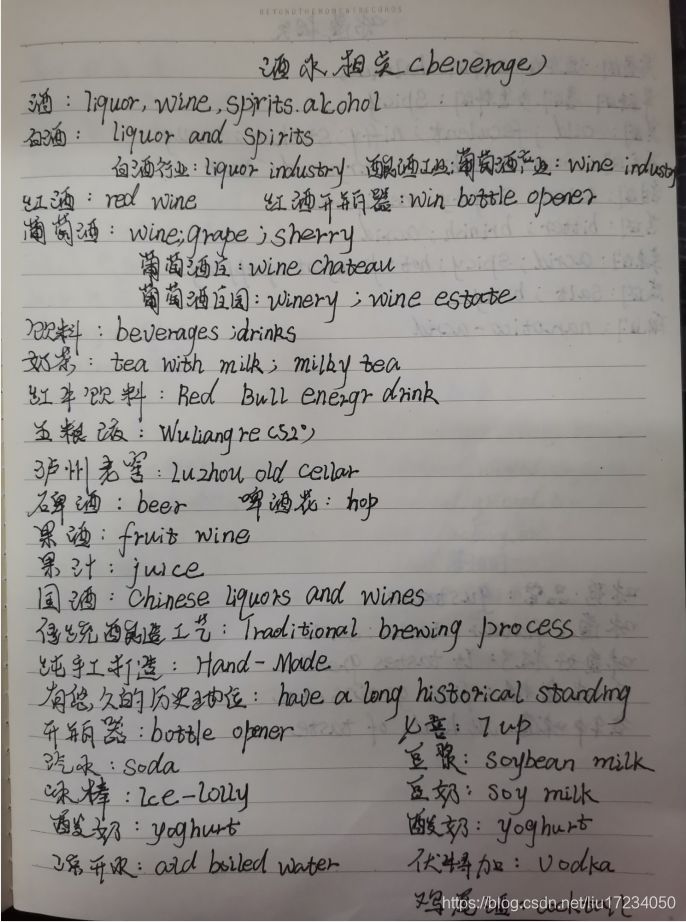 BEYONDTHEMOMENTRECORDS
酒水相关(beverage)
酒: liquor, wine, spirits. alcohol
白酒: liquor and spirits
白酒行业: liquor industry 酿酒工业;葡萄酒产业: wine industry
红酒: red wine 红酒开瓶器: win bottle opener
葡萄酒: wine; grape; sherry
葡萄酒庄: wine chateau
葡萄酒庄园: winery; wine estate
饮料: beverages; drinks
奶茶: tea with milk; milky tea
红牛饮料: Red Bull energr drink
五粮液: Wuliangre (52°)
泸州老窖: Luzhou old cellar
啤酒: beer 啤酒花: hop
果酒: fruit wine
果汁: juice
国酒: Chinese liquors and wines
传统酿造工艺: Traditional brewing process
纯手工打造: Hand-Made
有悠久的历史地位: have a long historical standing
开瓶器: bottle opener 七喜: 7 up
汽水: soda 豆浆: soybean milk
冰棒: Ice-Lolly 豆奶: soy milk
酸奶: yoghurt 酸奶: yoghurt
凉开水: boiled water 伏特加: Vodka
鸡尾酒:
https://blog.csdn.net/liu17234050